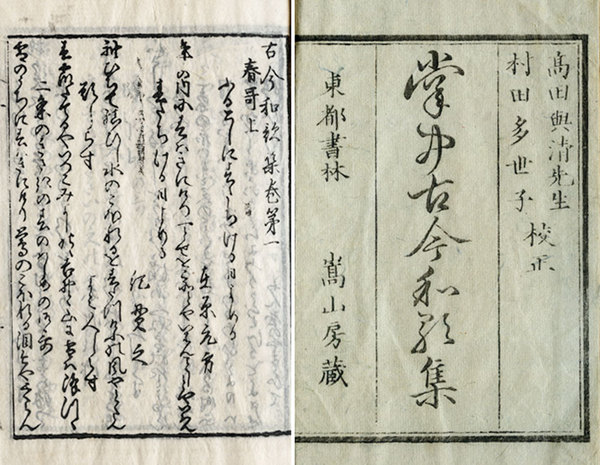 高田與清先生
村田多世子 校正
掌中古今和歌集
東都書林 嵩山房藏
古今和歌集巻第一
春哥上
ふるとしに春たちける日よめる
在原元方
年の内に春はきにけり一とせをこそとやいはんことしとやいはん
春たちける日よめる
紀貫之
袖ひちて結ひし水のこほれるを春立けふの風やとくらん
題しらす よみ人しらす
春霞たてるやいつこみよしのゝ吉野の山に雪はふりつゝ
二条のきさきの春のはしめの御哥
雪のうちに春はきにけり鶯のこほれる泪今やとくらん